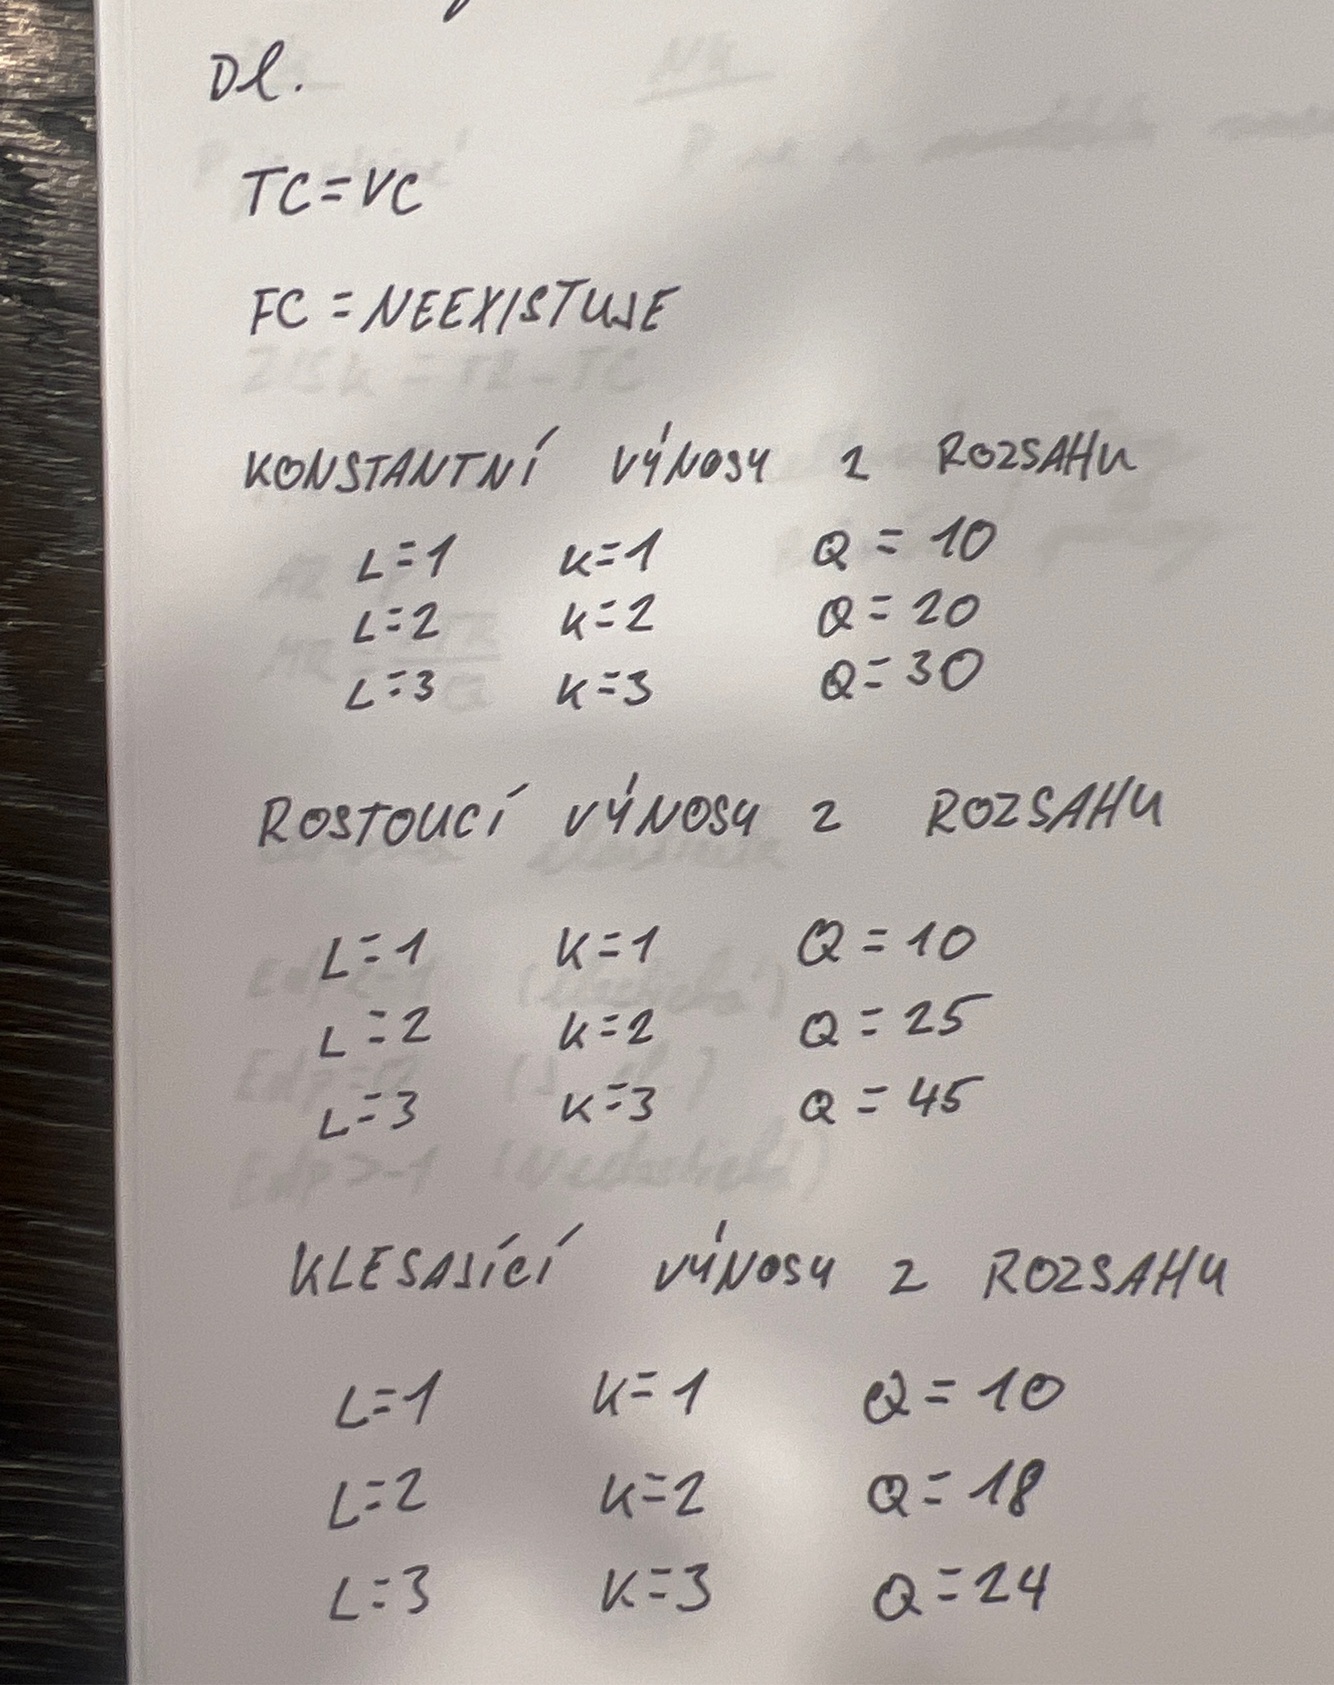 Dl.
TC=VC
FC = NEEXISTUJE
ZISK = TR - TC
KONSTANTNÍ VÝNOSY Z ROZSAHU
L=1 K=1 Q = 10
L=2 K=2 Q = 20
L=3 K=3 Q = 30
ROSTOUCÍ VÝNOSY Z ROZSAHU
L=1 K=1 Q = 10
L=2 K=2 Q = 25
L=3 K=3 Q = 45
KLESAJÍCÍ VÝNOSY Z ROZSAHU
L=1 K=1 Q = 10
L=2 K=2 Q = 18
L=3 K=3 Q = 24